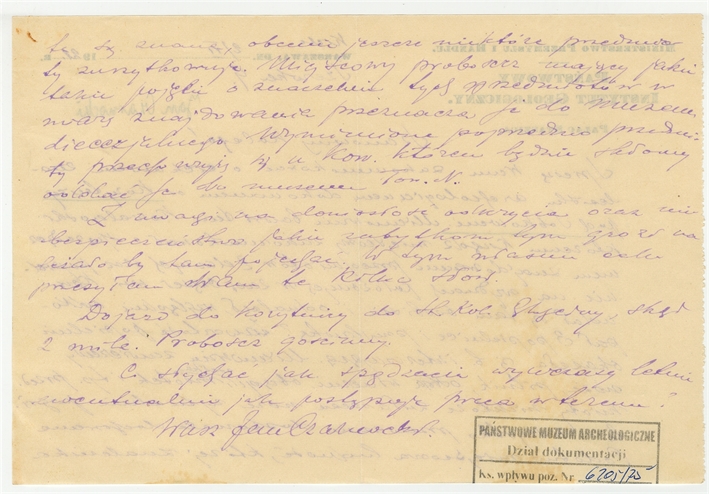 tę są znany, obecni jeszcze niektóre przedmio
ty zużytkowują. Miejscowy proboszcz mający jakie
takie pojęcie o znaczeniu tych przedmiotów w
miarę znajdowania przeznacza je do muzeum
diecezjalnego. Wymienione poprzednio przedmio
ty przechowuje się u kow. któren będzie skłonny
oddać je do muzeum Tow. N.
Z uwagi na doniosłość odkrycia oraz nie
bezpieczeństwo jakie zabytkom tym grozi na
leżało by tam pojechać. W tym właśnie celu
przesyłam Wam te kilka słów.
Dojazd do Korytnicy do st. kol. skąd
2 mile. Proboszcz gościnny.
Co słychać jak spędzacie wywczasy letnie
ewentualnie jak postępuje praca w terenie?
Wasz Jan Czarnocki.
PAŃSTWOWE MUZEUM ARCHEOLOGICZNE
Dział dokumentacji
Ks. wpływu poz. Nr 6205/75